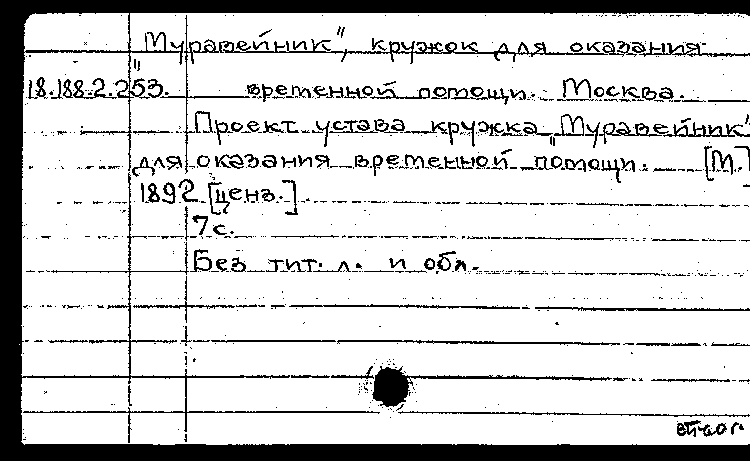 „Муравейник", кружок для оказания
18.188.2.253. временной помощи. Москва.
Проект устава кружка „Муравейник"
для оказания временной помощи. [М.]
1892 [ценз.]
7 с.
Без тит. л. и обл.